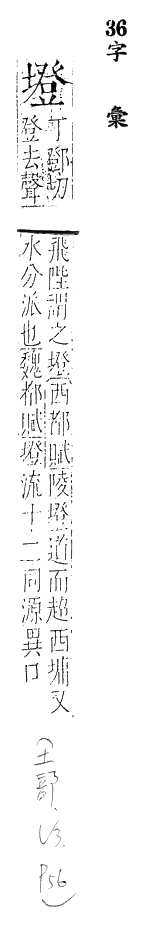 36字彙
墱丁鄧切
登去聲
飛陛謂之墱西都賦陵墱道而超西墉又
水分派也魏都賦墱流十二同源異口
(土部.
P56)